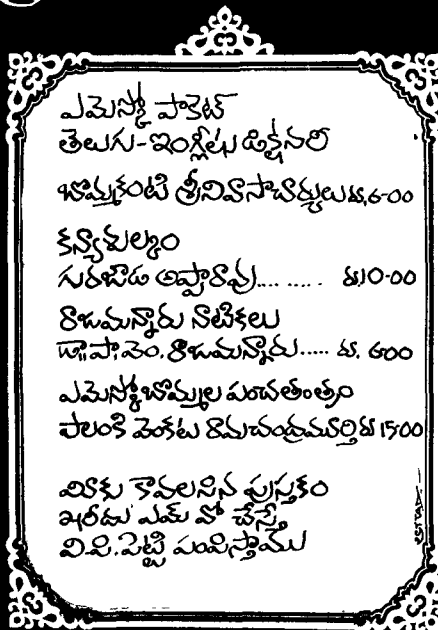 ఎమెస్కో పాకెట్
తెలుగు-ఇంగ్లీషు డిక్షనరీ
బొమ్మకంటి శ్రీనివాసాచార్యులు రు,6-00
కన్యాశుల్కం
గురజాడ అప్పారావు.... ..... రు.10-00
రాజమన్నారు నాటికలు
డా॥పా.వెం.రాజమన్నారు..... రు. 600
ఎమెస్కో బొమ్మల పంచతంత్రం
పాలంకి వెంకట రామచంద్రమూర్తి రు 15-00
మీకు కావలసిన పుస్తకం
ఖరీదు ఎమ్ వో చేస్తే
వి.పి.పెట్టి పంపిస్తాము